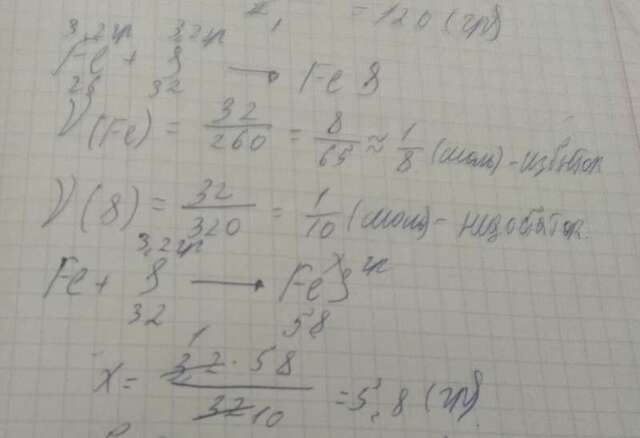 = 120 (гр)
3,2гр 3,2гр
Fe + S → Fe S
26 32
ν(Fe) = 32/260 = 8/65 ≈ 1/8 (моль) - избыток
ν(S) = 32/320 = 1/10 (моль) - недостаток.
3,2гр x гр
Fe + S → FeS
32 58
x = 32 · 58 / 32 10 = 5,8 (гр)
1